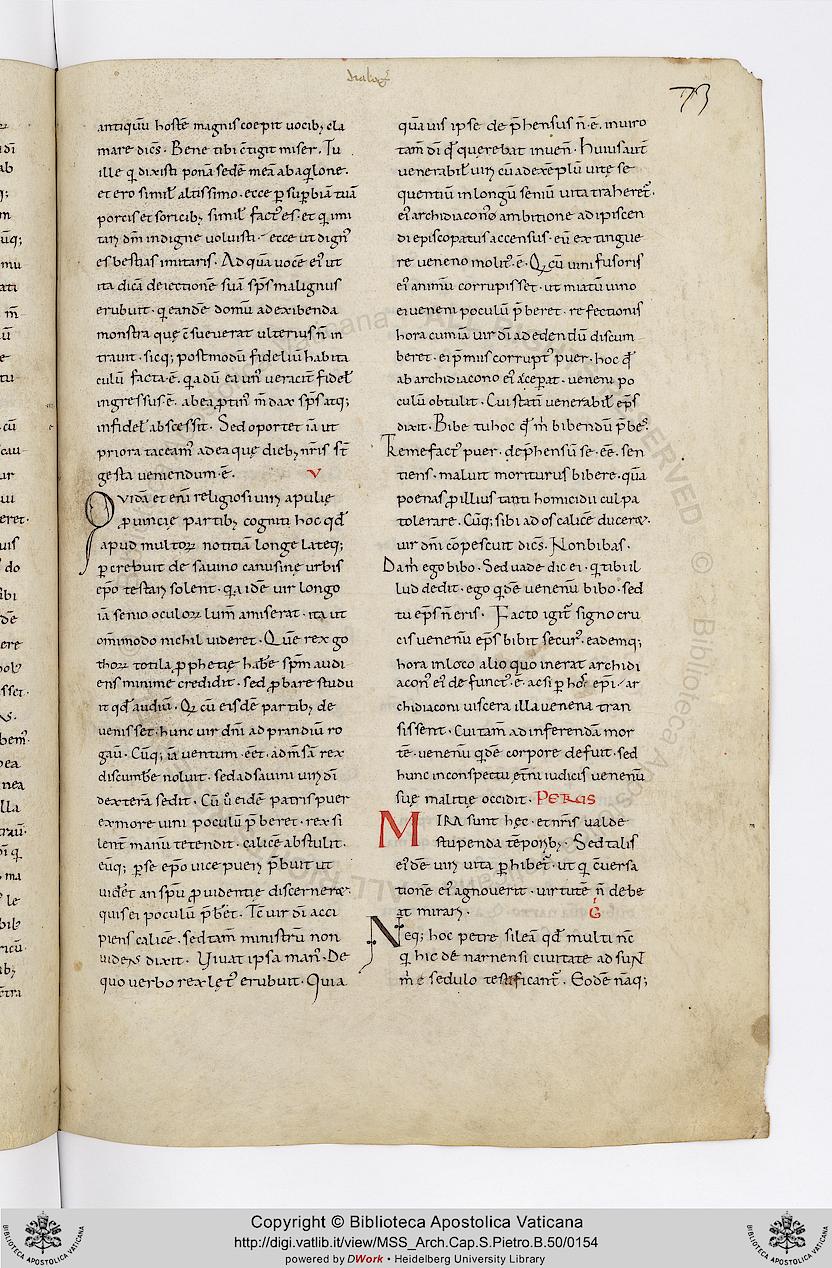 dialog̃
73
antiquũ hostẽ magnis coepit uocib; cla
mare dicẽs. Bene tibi cõtigit miser. Tu
ille q̃ dixisti ponã sedẽ meã ab aq̃lone.
et ero similꝭ altissimo. ecce ꝑ suꝑbiã tuã
porcis et soricib; similꝭ fact᷒ es. et q̃ imi
tari dm̃ indigne uoluisti. ecce ut dign᷒
es bestias imitaris. Ad quã uocẽ ei᷒ ut
ita dicã deiectionẽ suã sp̃s malignus
erubuit. q̃ eandẽ domũ ad exibenda
monstra quę cõsueuerat ulterius ñ in
trauit. sicq; postmodũ fideliũ habita
culũ facta ẽ. q̃a dũ eã un᷒ ueracit̃ fidelꝭ
ingressus ẽ. ab ea ꝓtin᷒ m̃dax sp̃s atq;
infidelꝭ abscessit. Sed oportet iã ut
priora taceam᷒ ad ea quę dieb; nr̃is st̃
gesta ueniendum ẽ.
V
Quidã et enĩ religiosi uiri apulię
ꝓuincię partib; cogniti hoc qd̃
apud multoꝝ notitiã longe lateq;
ꝑcrebuit de sauino canusinę urbis
ep̃o testari solent. q̃a idẽ uir longo
iã senio oculoꝝ lum̃ amiserat. ita ut
om̃imodo nichil uideret. Quẽ rex go
thoꝝ totila ꝓphetię habẽ sp̃m audi
ens minime credidit. sed ꝓbare studu
it qd̃ audiuĩ. Q̃ cũ eisdẽ partib; de
uenisset. hunc uir dñi ad prandiũ ro
gauĩ. Cũq; iã uentum eẽt. ad m̃sã rex
discumbẽ noluit. sed ad sauini uiri dĩ
dexterã sedit. Cũ ũ eidẽ patris puer
ex more uini poculũ p̃beret. rex si
lent̃ manũ tetendit. calicẽ abstulit.
eũq; ꝑ se ep̃o uice pueri p̃buit ut
uidẽt an sp̃u ꝓuidentię discerneret.
quis ei poculũ p̃bẽt. Tc̃ uir dĩ acci
piens calicẽ. sed tam̃ ministrũ non
uidens dixit. Uiuat ipsa man᷒. De
quo uerbo rex lęt᷒ erubuit. Quia
quãuis ipse dep̃hensus ñ ẽ. in uiro
tam̃ dĩ qd̃ querebat inueñ. Huius aut̃
uenerabilꝭ uiri cũ ad exẽplũ uitę se
quentiũ in longũ seniũ uita traheret᷑.
ei᷒ archidiacon᷒ ambitione adipiscen
di episcopatus accensus. eũ extingue
re ueneno molit᷒ ẽ. Q̃ cũ uini fusoris
ei᷒ animũ corrupisset. ut mixtũ uino
ei ueneni poculũ p̃beret. refectionis
hora cum iã uir dĩ ad edendũ discum
beret. ei p̃miis corrupt᷒ puer. hoc qd̃
ab archidiacono ei᷒ acceperat. ueneni po
culũ obtulit. Cui statĩ uenerabilꝭ ep̃s
dixit. Bibe tu hoc qd̃ m̃ bibendũ p̃bes.
Tremefact᷒ puer. dep̃hensũ se eẽ. sen
tiens. maluit moriturus bibere. quã
poenas ꝓ illius tanti homicidii culpa
tolerare. Cũq; sibi ad os calicẽ duceret.
uir dñi cõpescuit dicẽs. Non bibas.
Da m̃ ego bibo. Sed uade dic ei. q̃ tibi il
lud dedit. ego qdẽ uenenũ bibo. sed
tu ep̃s ñ eris. Facto igit᷑ signo cru
cis uenenũ ep̃s bibit secur᷒. eademq;
hora in loco alio quo inerat archidi
acon᷒ ei᷒ defunct᷒ ẽ. ac si ꝑ hos ep̃i. ar
chidiaconi uiscera illa uenena tran
sissent. Cui tam̃ ad inferendã mor
tẽ. uenenũ qdẽ corpore defuit. sed
hunc in conspectu et̃ni iudicis uenenũ
suę malitię occidit. PETRUS
MIRA sunt hęc. et nr̃is ualde
stupenda tẽporib;. Sed talis
ei᷒dẽ uiri uita ꝑhibet᷑. ut q̃ cũuersa
tionẽ ei᷒ agnouerit. uirtutẽ ñ debe
at mirari.
G̃
Neq; hoc petre sileã qd̃ multi nc̃
q̃ hic de narnensi ciuitate adsuñ
m̃ e sedulo testificant᷑. Eodẽ nãq;
Copyright © Biblioteca Apostolica Vaticana
http://digi.vatlib.it/view/MSS_Arch.Cap.S.Pietro.B.50/0154
powered by DWork • Heidelberg University Library